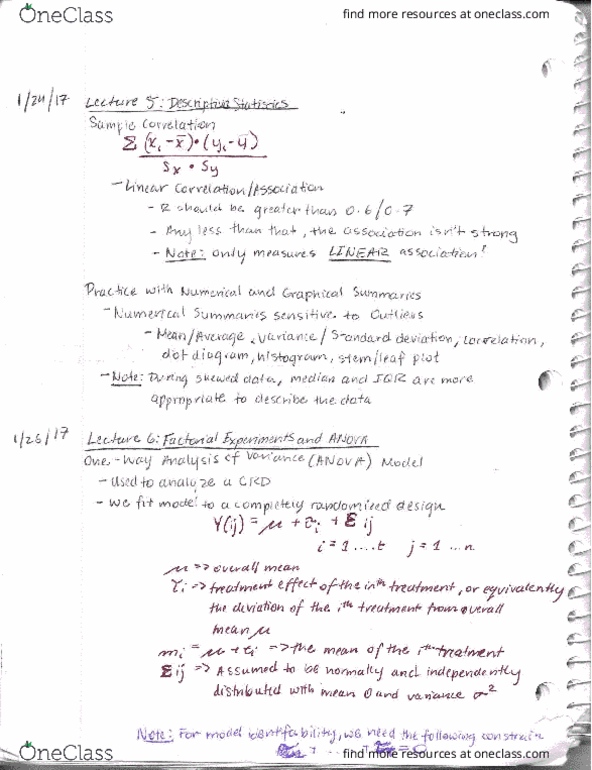 OneClass
find more resources at oneclass.com
1/24/17 Lecture 5: Descriptive Statistics
Sample Correlation
Σ (xi - x̄)•(yi - ȳ)
Sx • Sy
- Linear Correlation/Association
- R should be greater than 0.6/0.7
- Any less than that, the association isn't strong
- Note: only measures LINEAR association!
Practice with Numerical and Graphical Summaries
- Numerical Summaries sensitive to Outliers
- Mean/Average, variance/Standard deviation, correlation,
dot diagram, histogram, stem/leaf plot
- Note: During skewed data, median and IQR are more
appropriate to describe the data
1/26/17 Lecture 6: Factorial Experiments and ANOVA
One-Way Analysis of Variance (ANOVA) Model
- Used to analyze a CRD
- We fit model to a completely randomized design
Y(ij) = μ + τi + Σij
i = 1 ....t j = 1 ...n
μ => overall mean
τi => treatment effect of the ith treatment, or equivalently
the deviation of the ith treatment from overall
mean μ
mi = μ + τi => the mean of the ith treatment
Σij => Assumed to be normally and independently
distributed with mean 0 and variance σ²
Note: For model identifability, we need the following constrain
OneClass
find more resources at oneclass.com